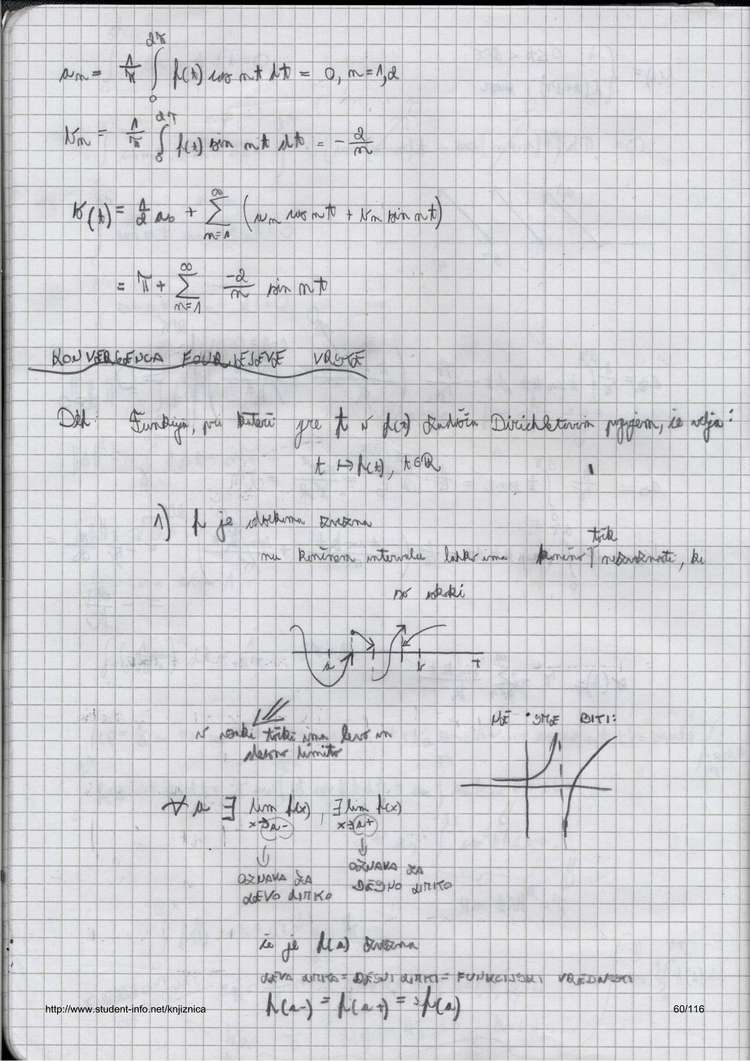 a_n = 1/π ∫_0^{2π} f(t) cos nt dt = 0, n=1,2
b_n = 1/π ∫_0^{2π} f(t) sin nt dt = -2/n
F(t) = 1/2 a_0 + ∑_{n=1}^{∞} (a_n cos nt + b_n sin nt)
= π + ∑_{n=1}^{∞} -2/n sin nt
KONVERGENCA FOURIEJEVE VRSTE
Def: Funkcija, pri kateri gre t v f(t) zadošča Dirichletovim pogojem, če velja:
t ↦ f(t), t∈ℝ
1) f je odsekoma zvezna
na končnem intervalu lahko ima končno točk nezveznosti, ki
so skoki
a b t
v vsaki točki ima levo in
desno limito
NE SME BITI:
∀ a ∃ lim_{x→a-} f(x), ∃ lim_{x→a+} f(x)
OZNAKA ZA LEVO LIMITO
OZNAKA ZA DESNO LIMITO
če je f(a) zvezna
LEVA LIMITA = DESNI LIMITI = FUNKCIJSKI VREDNOSTI
f(a-) = f(a+) = f(a)
http://www.student-info.net/knjiznica 60/116